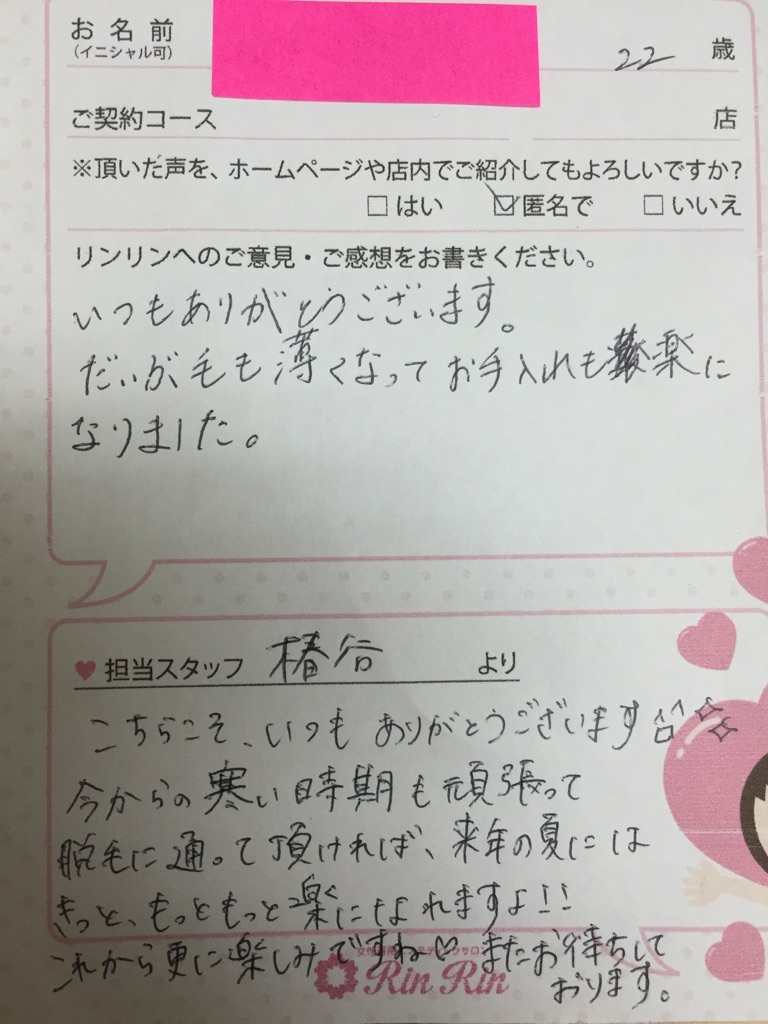 お名前
(イニシャル可)
22 歳
ご契約コース 店
※頂いた声を、ホームページや店内でご紹介してもよろしいですか?
□はい ☑匿名で □いいえ
リンリンへのご意見・ご感想をお書きください。
いつもありがとうございます。
だいぶ毛も薄くなってお手入れも楽に
なりました。
♥担当スタッフ 椿谷 より
こちらこそ、いつもありがとうございます
今からの寒い時期も頑張って
脱毛に通って頂ければ、来年の夏には
きっと、もっともっと楽になれますよ!!
これから更に楽しみですね♡またお待ちして
おります。
Rin Rin